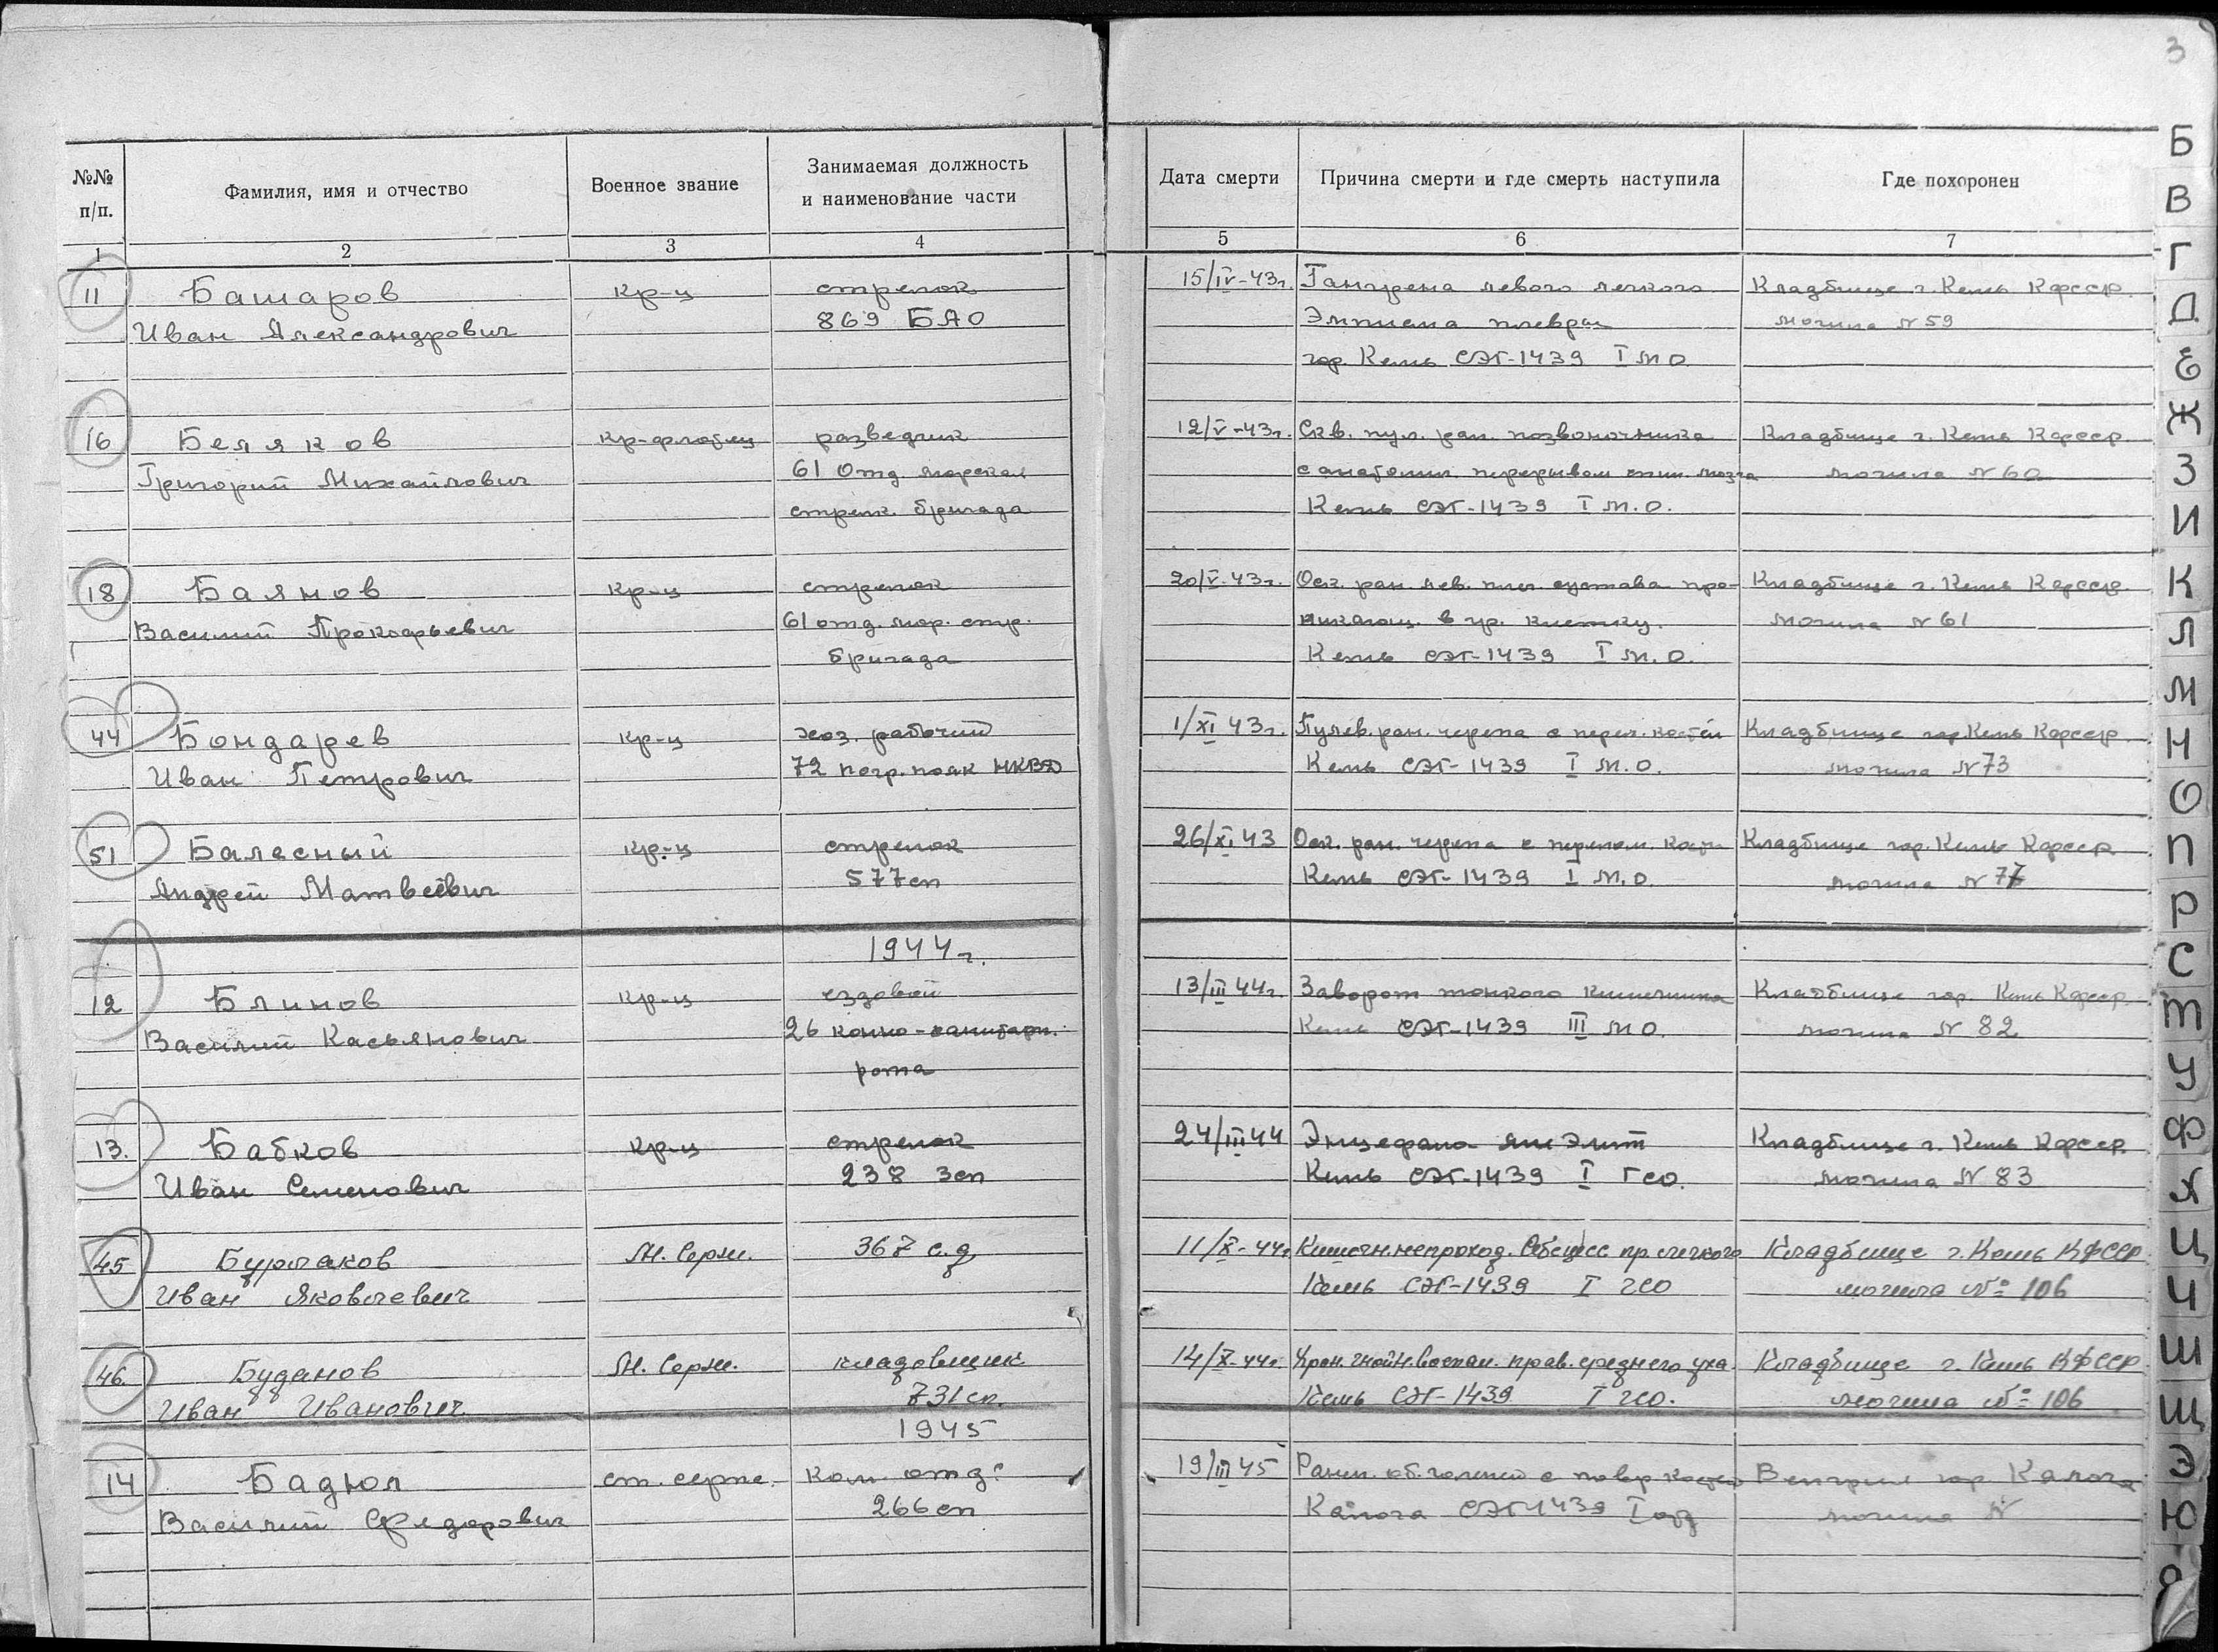 3
№№ п/п. Фамилия, имя и отчество Военное звание Занимаемая должность и наименование части Дата смерти Причина смерти и где смерть наступила Где похоронен
1 2 3 4 5 6 7
11 Башаров кр-ц стрелок 15/IV-43г. Гангрена левого легкого Кладбище г. Кемь Кфсср.
Иван Александрович 869 БАО Эмпиема плевры могила №59
гор. Кемь СЭГ-1439 I м о
16 Беляков кр-флотец разведчик 12/V-43г. Скв. пул. ран. позвоночника Кладбище г. Кемь Кфсср.
Григорий Михайлович 61 Отд. морская с анатомич. перерывом спин. мозга могила №60
стрелк. бригада Кемь СЭГ-1439 I м.о.
18 Баянов кр-ц стрелок 20/V-43г. Оск. ран. лев. плеч. сустава про- Кладбище г. Кемь Кфсср.
Василий Прокофьевич 61 отд. мор. стр. никающ. в гр. клетку. могила №61
бригада Кемь СЭГ-1439 I м.о.
44 Бондарев кр-ц хоз. рабочий 1/XI 43г. Пулев. ран. черепа с переч. костей Кладбище гор. Кемь Кфсср.
Иван Петрович 72 погр. полк НКВД Кемь СЭГ-1439 I м.о. могила №73
51 Балесный кр-ц стрелок 26/XI 43 Оск. ран. черепа с перелом. кост Кладбище гор. Кемь Кфсср
Андрей Матвеевич 577сп Кемь СЭГ-1439 I м.о. могила №77
1944г.
12 Блинов кр-ц ездовой 13/III 44г. Заворот тонкого кишечника Кладбище гор. Кемь Кфсср.
Василий Касьянович 26 конно-санитарн. Кемь СЭГ-1439 III м о. могила № 82
рота
13. Бабков кр-ц стрелок 24/III 44 Кладбище г. Кемь Кфсср.
Иван Семенович 238 зсп Кемь СЭГ-1439 I гсо. могила № 83
45 Бурлаков Мл. Серж. 367 с.д. 11/X-44г. Кишечн. непроход. Абсцесс пр. легкого Кладбище г. Кемь КФССР
Иван Яковлевич Кемь СЭГ-1439 I гсо могила № 106
46. Буданов Мл. Серж. кладовщик 14/X-44г. Хрон. гнойн. воспал. прав. среднего уха Кладбище г. Кемь КФССР
Иван Иванович 731сп. Кемь СЭГ-1439 I гсо. могила № 106
1945
14 Бадюл ст. серж. Ком. отд. 19/III 45 Ранен. об. голеней с повр костей Венгрия гор. Калоча
Василий Федорович 266сп Калоча СЭГ-1439 I могила №
Б
В
Г
Д
Е
Ж
З
И
К
Л
М
Н
О
П
Р
С
Т
У
Ф
Х
Ц
Ч
Ш
Щ
Э
Ю